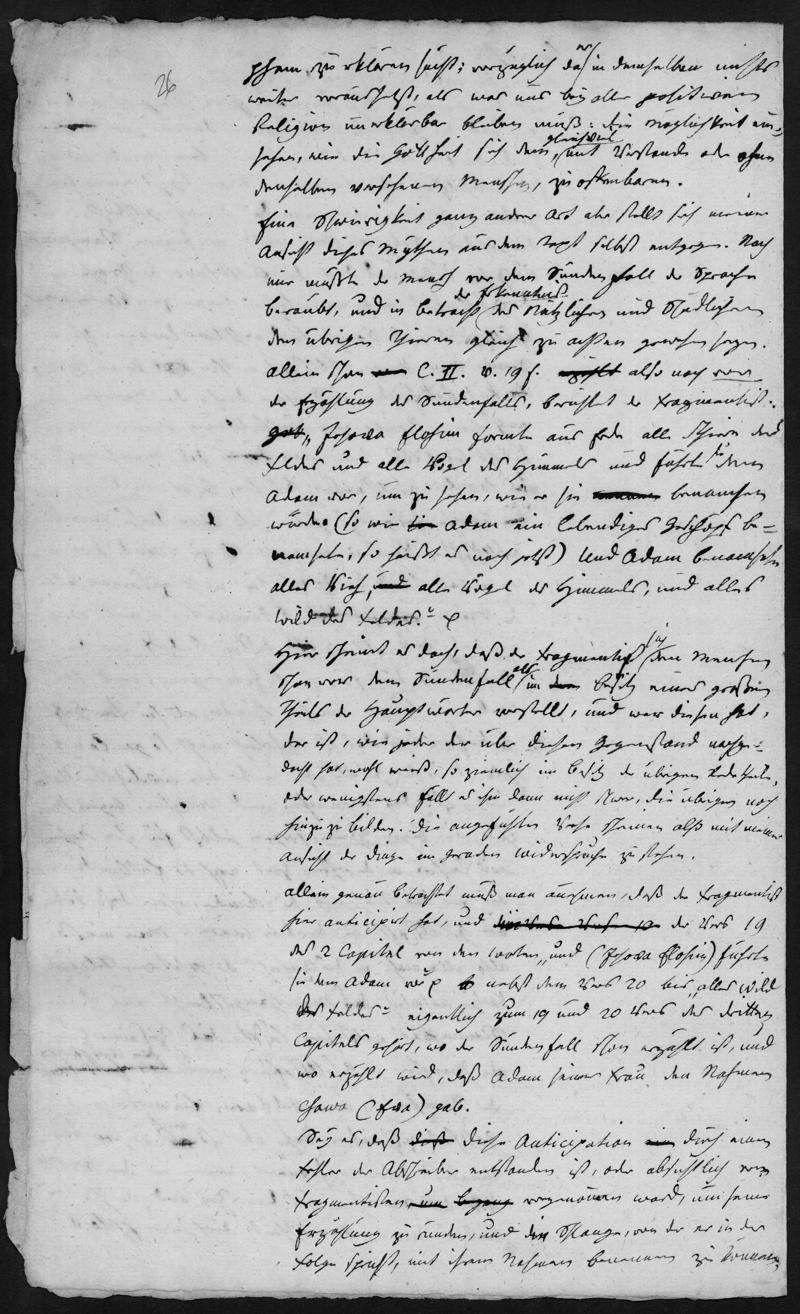 26
schen zu erklären sucht; vorzüglich da er in demselben nichts
weiter voraussetzt, als was uns bey aller positiven
Religion unerklärbar bleiben muß: die Möglichkeit ein-
sehen, wie die Gottheit sich dem, gleichviel mit Verstande oder ohne
denselben versehenen Menschen, zu offenbaren.
Eine Schwierigkeit ganz anderer Art aber stellt sich meiner
Ansicht dieses Mythen aus dem Text selbst entgegen. Nach
mir müßte der Mensch vor dem Sündenfall der Sprache
beraubt, und in betracht der Erkenntniß des Nützlichen und Schädlichen
den übrigen Thieren gleich zu achten gewesen seyn.
Allein schon C. II. v. 19 f. also noch vor
der Erzählung des Sündenfalls, berichtet der Fragmentist:
„Jehova Elohim formte aus Erde alle Thiere des
Feldes und alle Vögel des Himmels und führte sie dem
Adam vor, um zu sehen, wie er sie benamsen
würde (so wie Adam ein lebendiges Geschöpf be-
namsete, so heißt es noch jetzt) Und Adam benamsete
alles Vieh, alle Vögel des Himmels, und alles
Wild des Feldes."
Hier scheint es doch, daß der Fragmentist sich den Menschen
schon vor dem Sündenfall als im Besitz eines großen
Theils der Hauptwörter vorstellt, und wer diesen hat,
der ist, wie jeder der über diesen Gegenstand nachge-
dacht hat, wohl weiß, so ziemlich im Besitz der übrigen Redetheile,
oder wenigstens fällt es ihm dann nicht schwer, die übrigen noch
hinzu zu bilden. Die angeführten Verse scheinen also mit meiner
Ansicht der Dinge im geraden Widerspruche zu stehen.
Allein genau betrachtet muß man annehmen, daß der Fragmentist
hier anticipirt hat, und der Vers 19
des 2 Capitel von den Worten „und (Jehova Elohim) führte
sie dem Adam vor nebst dem Vers 20 bis „alles Wild
des Feldes" eigentlich zum 19 und 20 Vers des dritten
Capitels gehört, wo der Sündenfall schon erzählt ist, und
wo erzählt wird, daß Adam seiner Frau den Nahmen
Chawa (Eva) gab.
Sey es, daß diese Anticipation durch einen
Fehler der Abschreiber entstanden ist, oder absichtlich vom
Fragmentisten vorgenommen ward, um seine
Erzählung zu ründen, und die Schlange, von der er in der
Folge spricht, mit ihrem Nahmen benennen zu können,